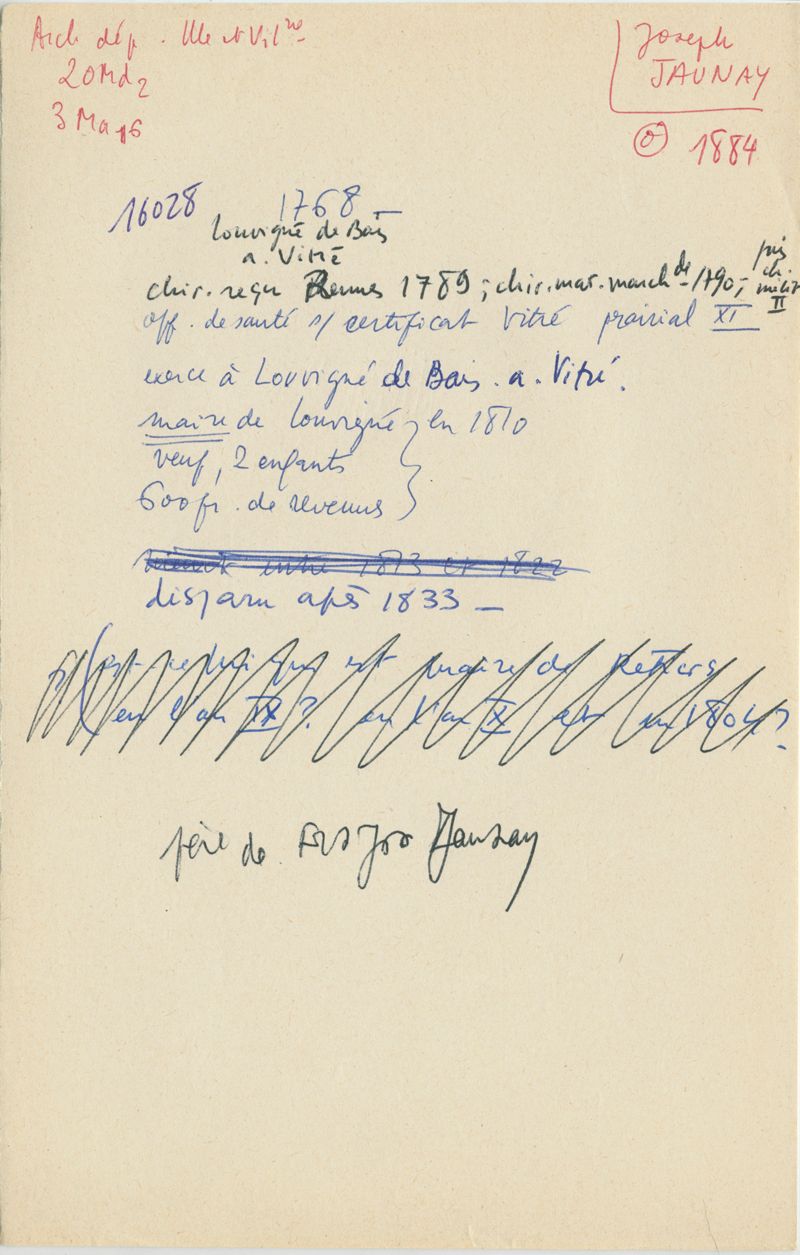 Arch dép. Ille et Vil^ne
20Md2
3 Ma 16
Joseph
JAUNAY
1884
16028 1768 –
Louvigné de Bais
a. Vitré
chir. reçu Rennes 1789 ; chir. mar. march^de 1790, puis ch. milit II
off. de santé s/ certificat Vitré prairial XI
exerce à Louvigné de Bais . a . Vitré.
maire de Louvigné } en 1810
veuf, 2 enfants
600 fr. de revenus
entre 1813 et 1822
disparu après 1833 –
(est-ce lui qui est maire de Retiers
en l'an IX ? en l'an X en 1804 ?
père de Frs Jos Jaunay